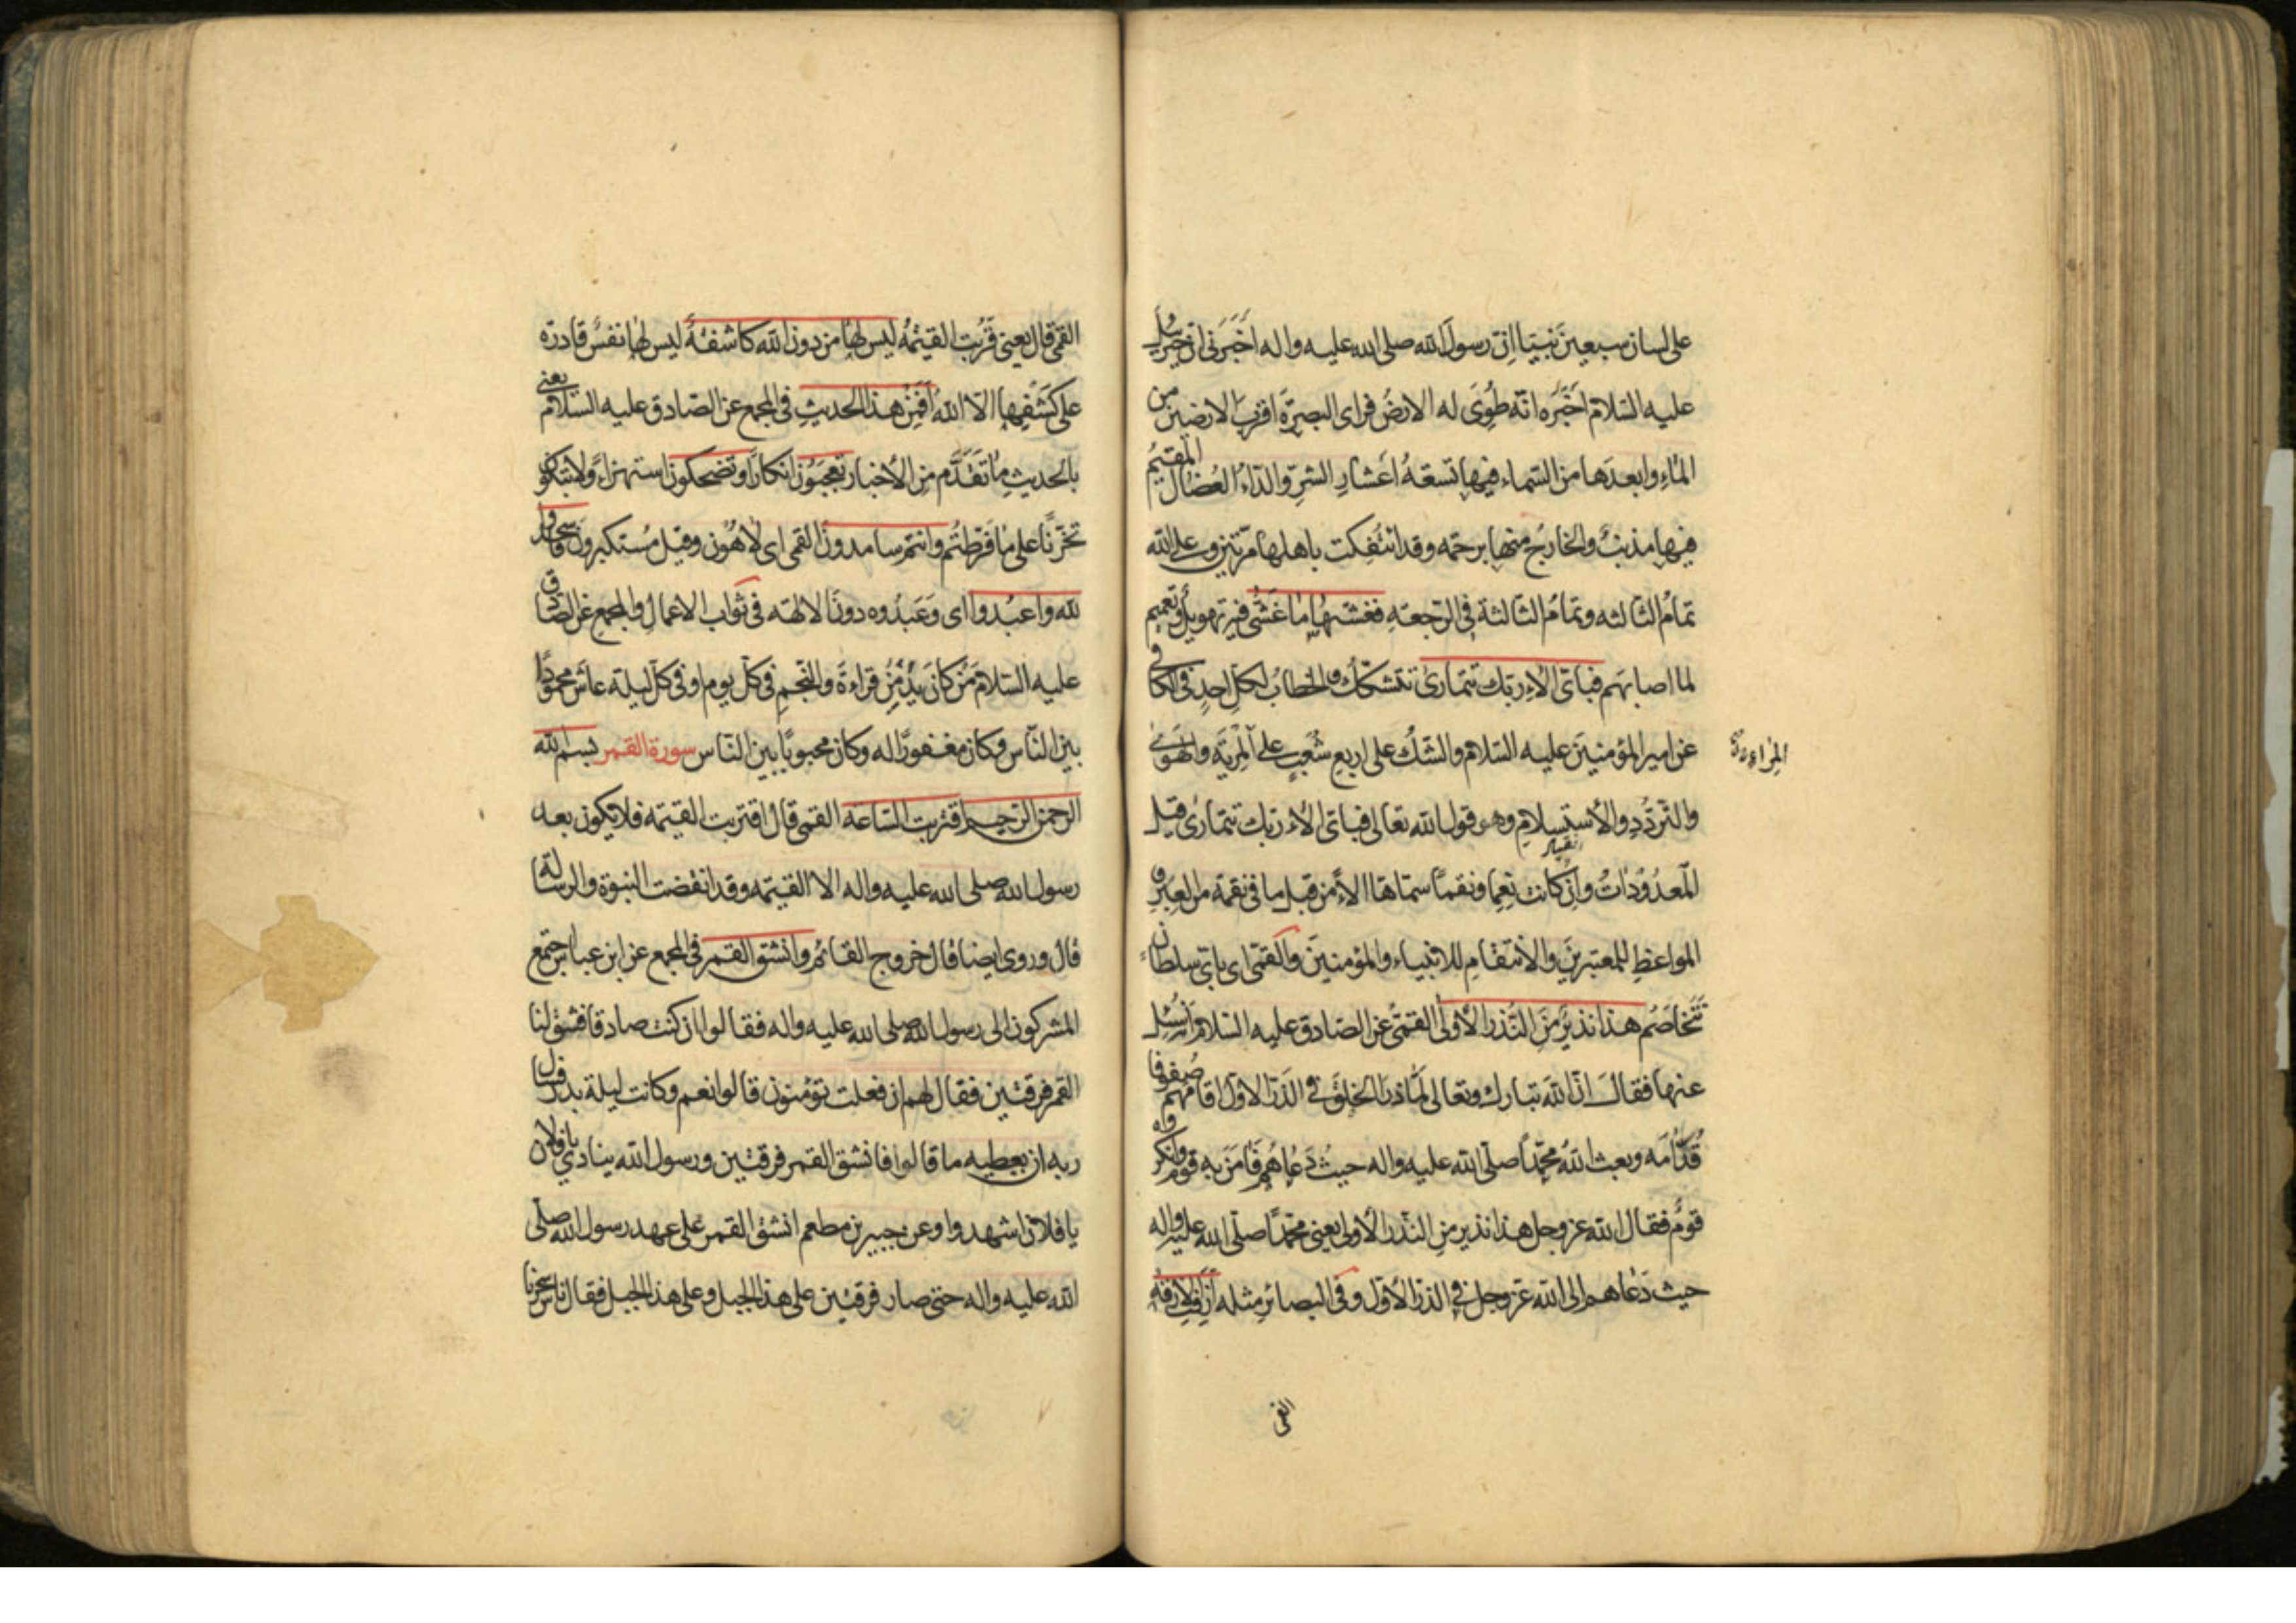 على لسان سبعين نبيّا انّ رسول الله صلى الله عليه واله اَخبَرَنى ان جبرئيل
عليه السّلام اَخبَره انّه طُوِىَ له الارضُ فراى البصرَة اقربَ الارضين من
الماءِ وابعدَها من السّماء فيها تسعةُ اَعشارِ الشرِّ والدّاءُ العُضالُ المقيمُ
فيها مذنبٌ والخارجُ منها برحمَه وقد ائتُفِكت باهلها مرّتين وعلى الله
تمامُ الثّالثه وتمامُ الثالثة فى الرّجعة فغشّٰيها ما غَشّٰى فيه تهويلٌ وتعميم
لما اصابهم فبأىّ الآءِ ربّك تتمارىٰ تتشكّك والخطابُ لكلّ احدٍ فى الكافى
عن امير المؤمنينَ عليه السّلام والشكُ على اربع شُعَبٍ على المِريَه والهَوىٰ
المِراء ءة
والتّردّدِ والاُستسلامِ وهو قول الله تعالى فباىّ الآء ربّك تتمارىٰ قيل
المَعدُوداتُ وان كانت نِعما ونقماً سمّاها الآءً من قبل ما فى نقمه من العِبَرِ و
المواعظِ للمعتبرينَ والاُنتقامِ للانبياء والمؤمنينَ والقمّى اى باىّ سلطان
تَتَخاصَمُ هذا نذيرٌ منَ النّذُر الاُولىٰ القمّى عن الصّادق عليه السّلام انه سُئِل
عنها فقالَ انّ اللهَ تبارك وتعالى لمّا ذرأ الخلقَ فى الذّرّ الاوّل اقامَهم صُفوفا
قُدّامَه وبعث اللهُ محمّداً صلّى الله عليه واله حيثُ دَعاهُم فامَنَ به قومٌ وانكره
قومٌ فقال الله عزوجل هذا نذير مِن النّذُر الاُولىٰ يعنى محمّداً صلّى الله عليه واله
حيث دَعاهم الى الله عزّوجل فى الذرّ الاُوّل وفى البصائرِ مثله أَزِفَتِ الآزِفَه
القمى
القمّى قال يعنى قَرُبت القيٰمَةُ ليس لها من دون الله كاشفةٌ ليس لها نفسٌ قادرَه
على كَشفِها الّا اللهُ اَفَمِنْ هذا الحديثِ فى المجمع عن الصّادق عليه السّلام يعنى
بالحديثِ ما تَقدّم من الاُخبار تعجَبُونَ انكاراً وتضحكون استهزاءً ولا تبكون
تحزّناً على ما فرّطتُم وانتم سامدونَ القمى اى لاهُون وقيل مُستكبرون فاسجدوا
لله واعبُدوا اى وَعَبدُوه دونَ الالهَه فى ثواب الاعمالِ والمجمع عن الصّادق
عليه السّلام مَن كانَ يُدْمِنُ قراءةَ والنّجمِ فى كلّ يوم او فى كلّ ليلة عاشَ محمُودًا
بينَ النّاس وكان مغفورًا له وكان محبوبًا بين النّاس سورة القمر بسم الله
الرحمن الرّحيم اقتربت السّاعة القمى قال اقتربت القيٰمة فلا يكون بعد
رسول الله صلى الله عليه واله الا القيٰمه وقد انقضت النبوّة والرّسالة
قال وروى ايضا قال خروج القائم وانشق القمر فى المجمع عن ابن عباس اجتمع
المشركون الى رسول الله صلى الله عليه واله فقالوا ان كنت صادقا فشق لنا
القمر فرقتين فقال لهم ان فعلت تؤمنون قالوا نعم وكانت ليلة بدر فسأل
ربه ان يعطيه ما قالوا فانشق القمر فرقتين ورسول الله ينادى يا فلان
يا فلان اشهدوا وعن جبير بن مطعم انشق القمر على عهد رسول الله صلى
الله عليه واله حتى صار فرقتين على هذا الجبل وعلى هذا الجبل فقال ناس سحرنا